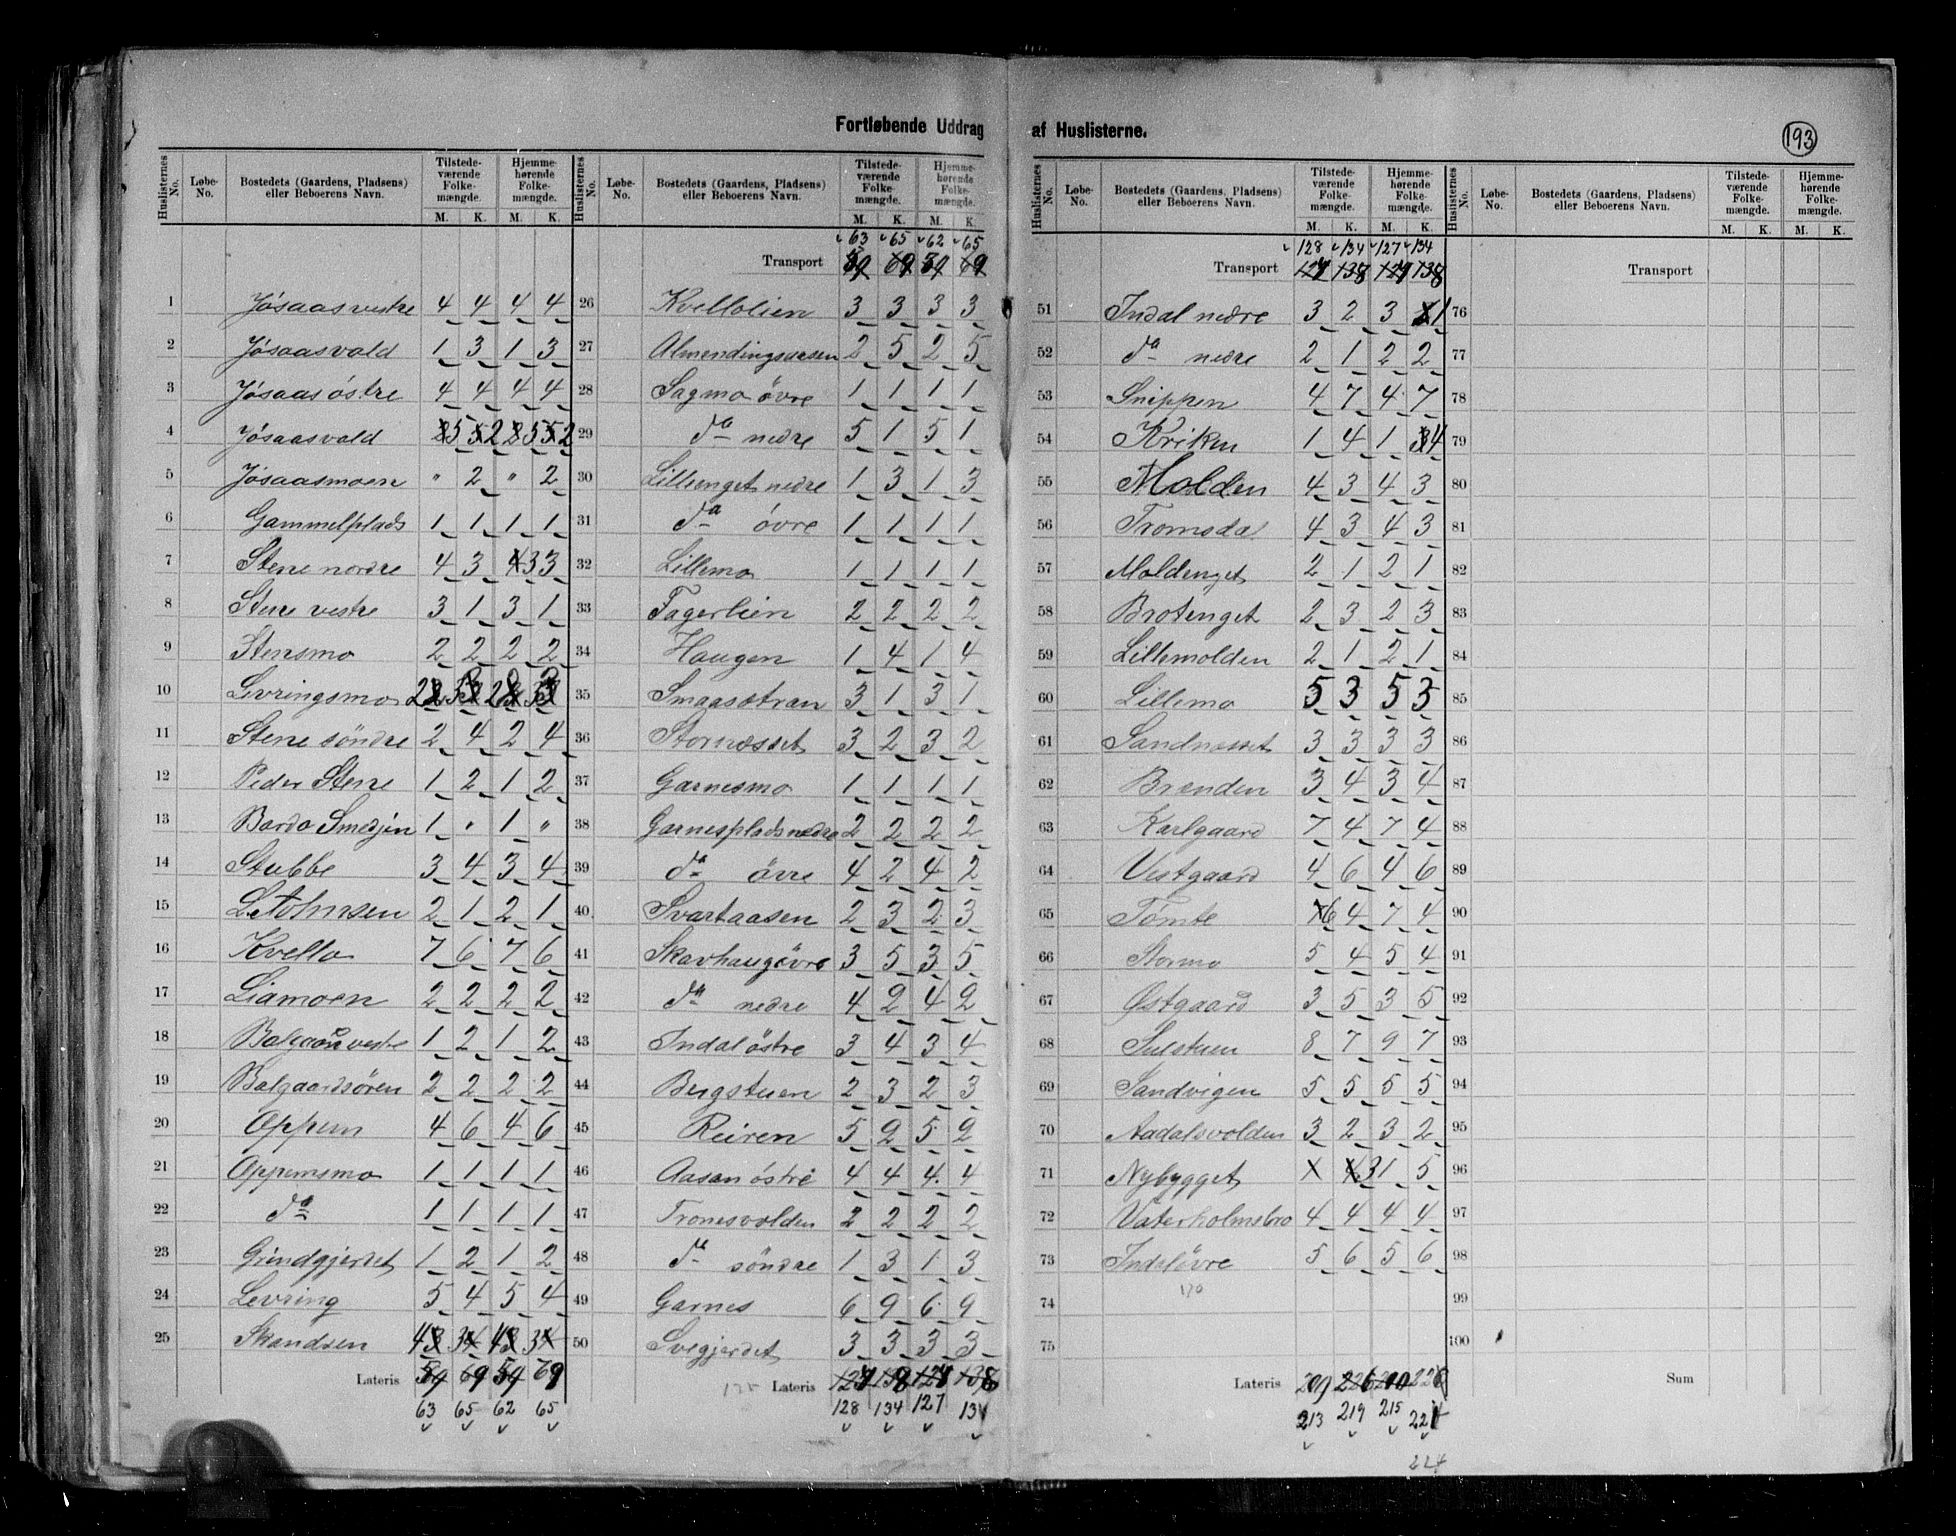 Fortløbende Uddrag af Huslisterne.
193
Huslisternes No. Løbe-No. Bostedets (Gaardens, Pladsens) eller Beboerens Navn. Tilstedeværende Folkemængde. M. K. Hjemmehørende Folkemængde. M. K.
1 Jøsaas vestre 4 4 4 4
2 Jøsaasvald 1 3 1 3
3 Jøsaas östre 4 4 4 4
4 Jøsaasvald 5 2 5 2
5 Jøsaasmoen " 2 " 2
6 Gammelplads 1 1 1 1
7 Stene nordre 4 3 3 3
8 Stene vestre 3 1 3 1
9 Stensmo 2 2 2 2
10 Levringsmo
11 Stene söndre 2 4 2 4
12 Peder Stene 1 2 1 2
13 Bardo Smedjen 1 " 1 "
14 Stubbe 3 4 3 4
15 2 1 2 1
16 Kvello 7 6 7 6
17 Liamoen 2 2 2 2
18 vestre 1 2 1 2
19 Balgaardsören 2 2 2 2
20 Oppem 4 6 4 6
21 Oppemsmo 1 1 1 1
22 do 1 1 1 1
23 Grindgjerdet 1 2 1 2
24 Levring 5 4 5 4
25 Skandsen 4 3 4 3
Lateris 59 69 59 69
63 65 62 65
Huslisternes No. Løbe-No. Bostedets (Gaardens, Pladsens) eller Beboerens Navn. Tilstedeværende Folkemængde. M. K. Hjemmehørende Folkemængde. M. K.
63 65 62 65
Transport 59 69 59 69
26 Kvellolien 3 3 3 3
27 Almendingsaasen 2 5 2 5
28 Sagmo övre 1 1 1 1
29 do nedre 5 1 5 1
30 Lillenget nedre 1 3 1 3
31 do övre 1 1 1 1
32 Lillemo 1 1 1 1
33 Fagerlien 2 2 2 2
34 Haugen 1 4 1 4
35 Smaasetran 3 1 3 1
36 Stornæsset 3 2 3 2
37 Garnesmo 1 1 1 1
38 Garnesplads nedre 2 2 2 2
39 do övre 4 2 4 2
40 Svartaasen 2 3 2 3
41 Skavhaug övre 3 5 3 5
42 do nedre 4 2 4 2
43 Indal östre 3 4 3 4
44 Bergstuen 2 3 2 3
45 Reiren 5 2 5 2
46 Aasan östre 4 4 4 4
47 Tronesvolden 2 2 2 2
48 do söndre 1 3 1 3
49 Garnes 6 9 6 9
50 Svegjerdet 3 3 3 3
Lateris 124 138 124 138
128 134 127 134
Huslisternes No. Løbe-No. Bostedets (Gaardens, Pladsens) eller Beboerens Navn. Tilstedeværende Folkemængde. M. K. Hjemmehørende Folkemængde. M. K.
128 134 127 134
Transport 124 138 124 138
51 Indal nedre 3 2 3 1
52 do nedre 2 1 2 2
53 Snippen 4 7 4 7
54 Kriken 1 4 1 4
55 Molden 4 3 4 3
56 Tromsdal 4 3 4 3
57 Moldenget 2 1 2 1
58 Brotenget 2 3 2 3
59 Lillemolden 2 1 2 1
60 Lillemo 5 3 5 3
61 Sandnæsset 3 3 3 3
62 Brenden 3 4 3 4
63 Karlgaard 7 4 7 4
64 Vestgaard 4 6 4 6
65 Tömte 6 4 7 4
66 Stormo 5 4 5 4
67 Østgaard 3 5 3 5
68 Sulstuen 8 7 9 7
69 Sandvigen 5 5 5 5
70 Aadalsvolden 3 2 3 2
71 Nybygget 3 1 5
72 Vaterholmsbro 4 4 4 4
73 Indal övre 5 6 5 6
74
75
Lateris 209 226 210 226
213 219 215 224
224
Huslisternes No. Løbe-No. Bostedets (Gaardens, Pladsens) eller Beboerens Navn. Tilstedeværende Folkemængde. M. K. Hjemmehørende Folkemængde. M. K.
Transport
76
77
78
79
80
81
82
83
84
85
86
87
88
89
90
91
92
93
94
95
96
97
98
99
100
Sum